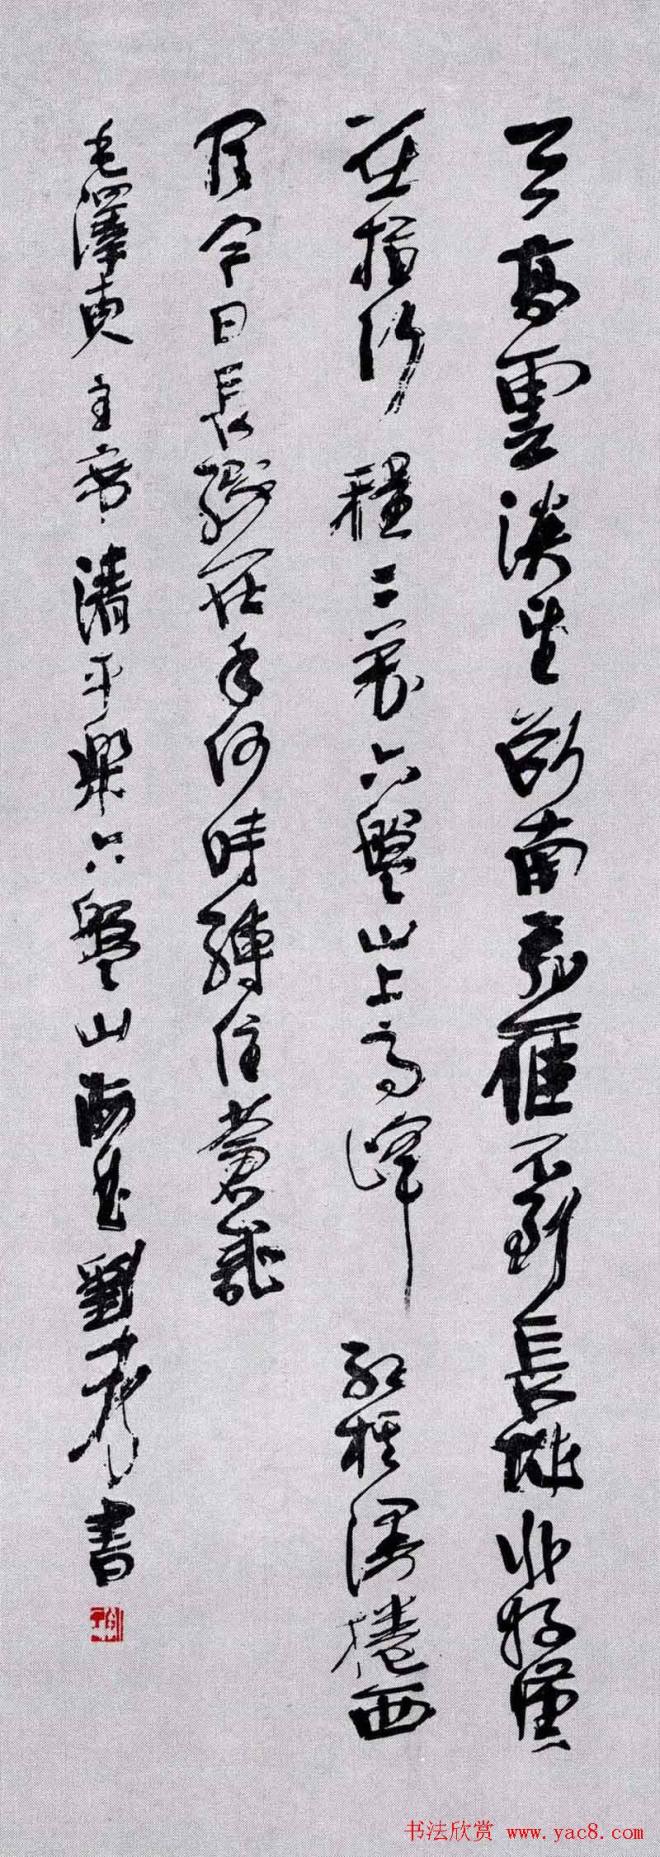 天高雲淡望斷南飛雁不到長城非好漢
屈指行程二萬六盤山上高峰紅旗漫捲西
風今日長纓在手何時縛住蒼龍
毛澤東主席清平樂六盤山劉書
书法欣赏 www.yac8.com